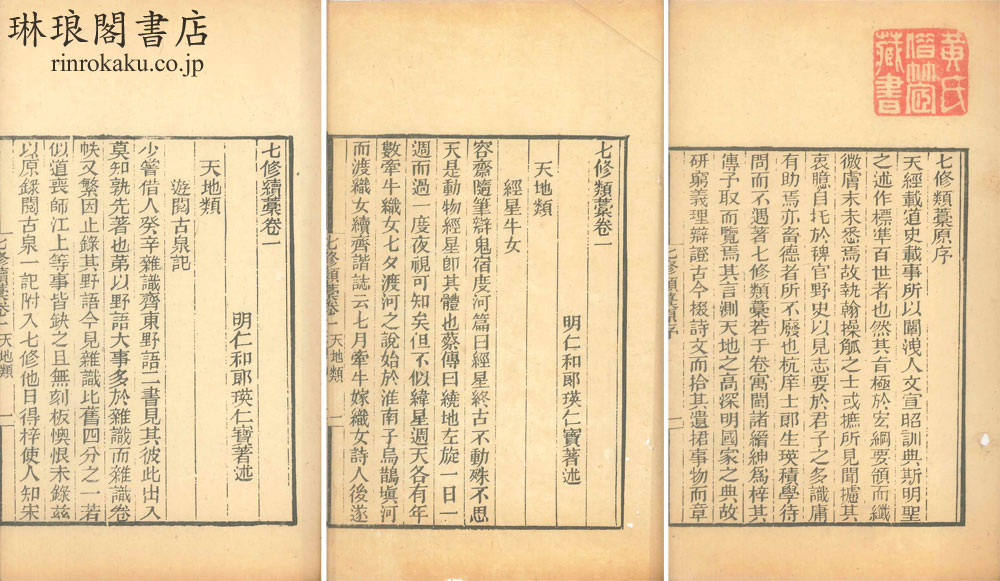 琳琅閣書店
rinrokaku.co.jp
黄氏
藏書
七修類藁原序
天經載道史載事所以闡浅人文宣昭訓典斯明聖
之述作標準百世者也然其言極於宏綱要領而纖
微膚末未悉焉故執翰操觚之士或摭所見聞攄其
衷臆自托於稗官野史以見志要於君子之多識庸
有助焉亦畜德者所不廢也杭庠士郎生瑛積學待
問而不遇著七修類藁若于卷寓閩諸縉紳為梓其
傳予取而覧焉其言測天地之高深明國家之典故
研窮義理辯證古今掇詩文而拾其遺捃事物而章
七修類藁序
一
七修類藁卷一
明仁和郎瑛仁寶著述
天地類
經星牛女
容齋隨筆辯鬼宿度河篇曰經星終古不動殊不思
天是動物經星卽其體也蔡傳曰繞地左旋一日一
週而過一度夜視可知矣但不似緯星週天各有年
數牽牛織女七夕渡河之說始於淮南子烏鵲塡河
而渡織女續齊諧誌云七月牽牛嫁織女詩人後遂
七修類藁卷一 天地類
一
七修續藁卷一
明仁和郎瑛仁寶著述
天地類
遊閱古泉記
少嘗借人癸辛雜識齊東野語二書見其彼此出入
莫知孰先著也第以野語大事多於雜識而雜識卷
帙又繁因止錄其野語今見雜識比舊四分之一若
似道喪師江上等事皆缺之且無刻板懊恨未錄兹
以原錄閱古泉一記附入七修他日得梓使人知宋
七修續藁卷一 天地類
一